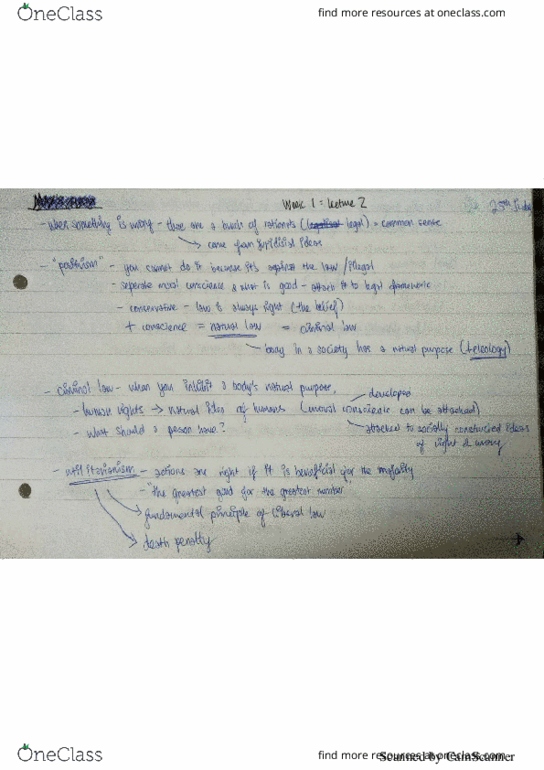 OneClass
find more resources at oneclass.com
Week 1 = Lecture 2
25th
- when something is wrong - there are a bunch of rationals ( legal) = common sense
come from juridicial ideas
- "positivism" - you cannot do it because its against the law / illegal
- seperate moral conscience & what is good - attach it to legal
- conservative - law is always right (the belief)
+ conscience = natural law = criminal law
body in a society has a natural purpose (teleology)
- criminal law - when you inhibit a body's natural purpose.
developed
- human rights → natural idea of humans (moral conscience can be attached)
- what should a person have?
attached to socially constructed ideas
of right & wrong
- utilitarianism - actions are right if it is beneficial for the majority
- "the greatest good for the greatest number"
fundamental principle of liberal law
death penalty
OneClass
find more resources at oneclass.com
Scanned by CamScanner